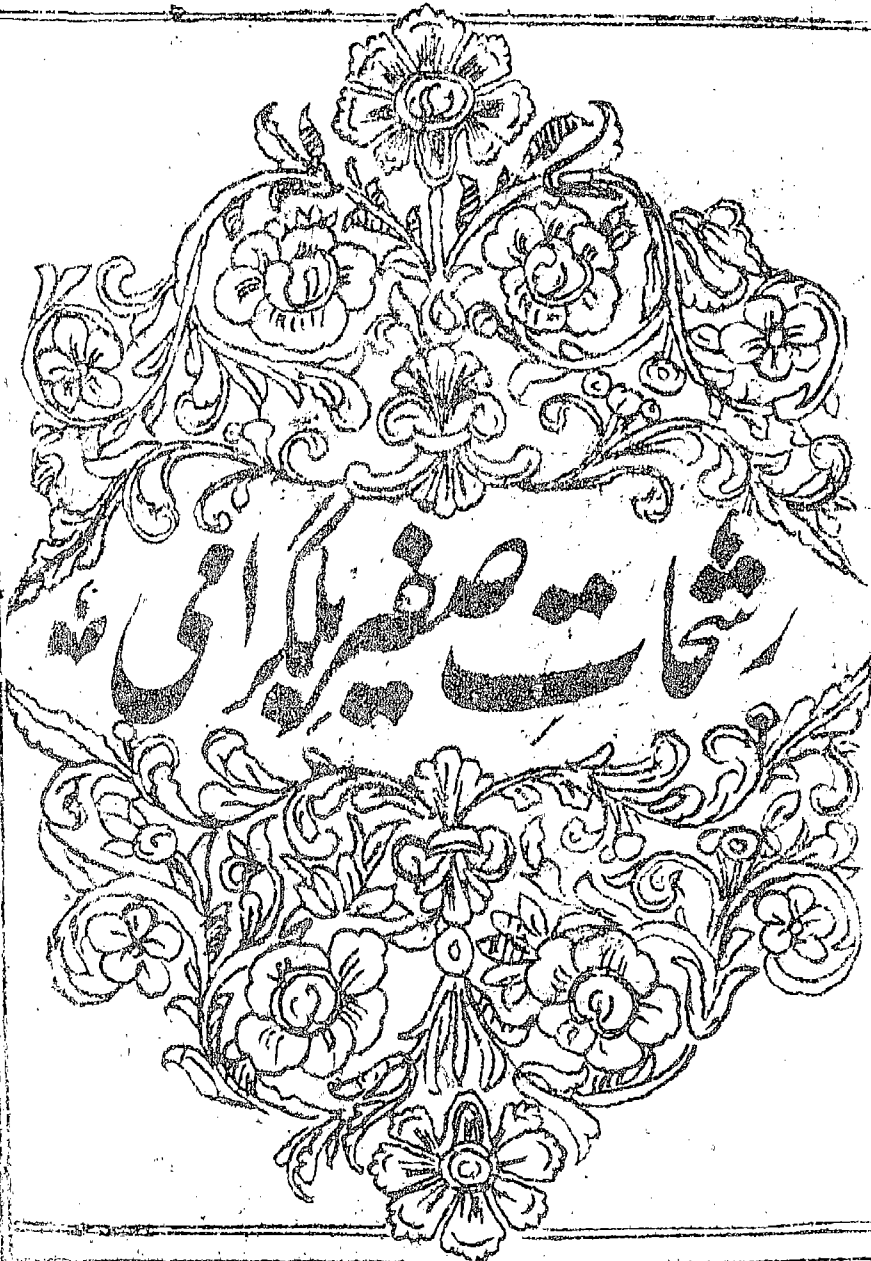 رشحاتِ صفیر بلگرامی